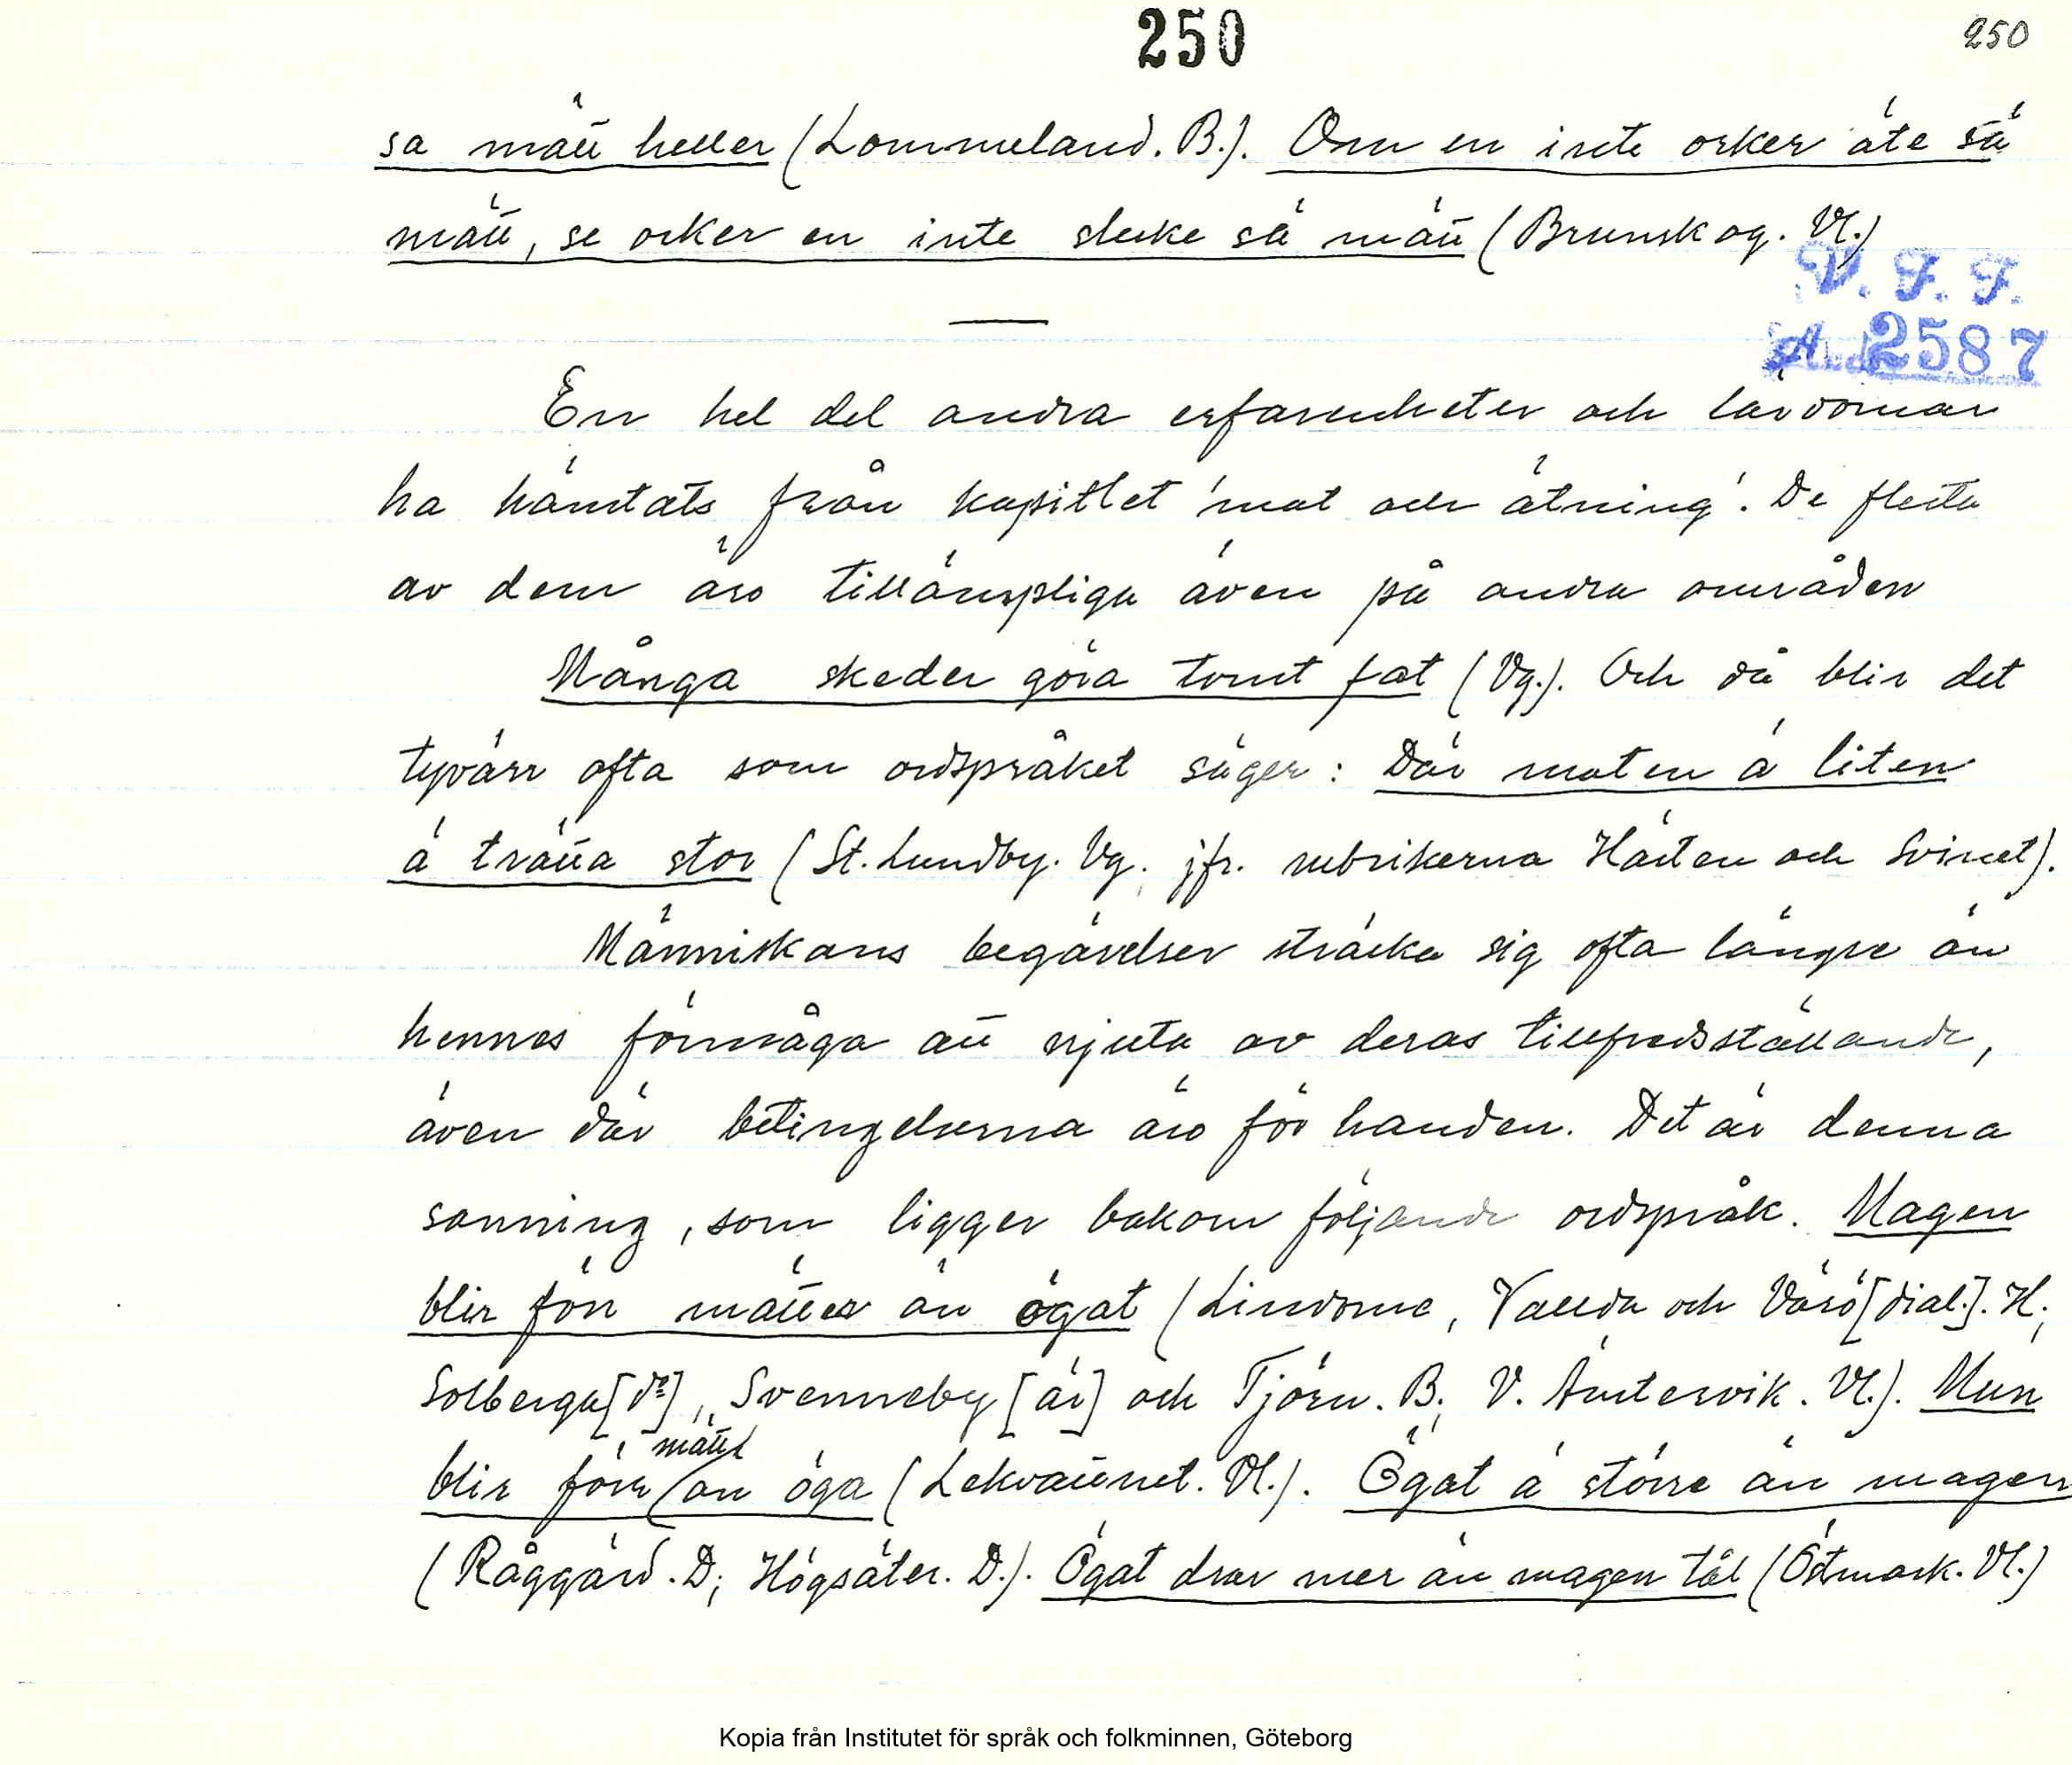 250
250
sa mätt heller (Lommeland. B.). Om en inte orker äte sä
mätt, se orker en inte slecke sä mätt (Brunskog. Vl.)
V. F. F.
A 2587
En hel del andra erfarenheter och lärdomar
ha hämtats från kapitlet 'mat och ätning'. De flesta
av dem äro tillämpliga även på andra områden
Många skeder göra tomt fat (Vg.). Och då blir det
tyvärr ofta som ordspråket säger: Där maten ä liten
ä trätta stor (St. Lundby. Vg. jfr. rubrikerna Hästen och Svinet).
Människans begärelser sträcka sig ofta längre än
hennes förmåga att njuta av deras tillfredsställande,
även där betingelserna äro för handen. Det är denna
sanning, som ligger bakom följande ordspråk. Magen
blir förr mätter än ögat (Lindome, Vallda och Värö [dial.]. H;
Solberga [do], Svenneby [är] och Tjörn. B; V. Ämtervik. Vl.). Mun
mätt
blir förr än öga (Lekvattnet. Vl.). Ögat ä större än magen
(Råggärd. D; Högsäter. D.). Ögat drar mer än magen tål (Östmark. Vl.)
Kopia från Institutet för språk och folkminnen, Göteborg